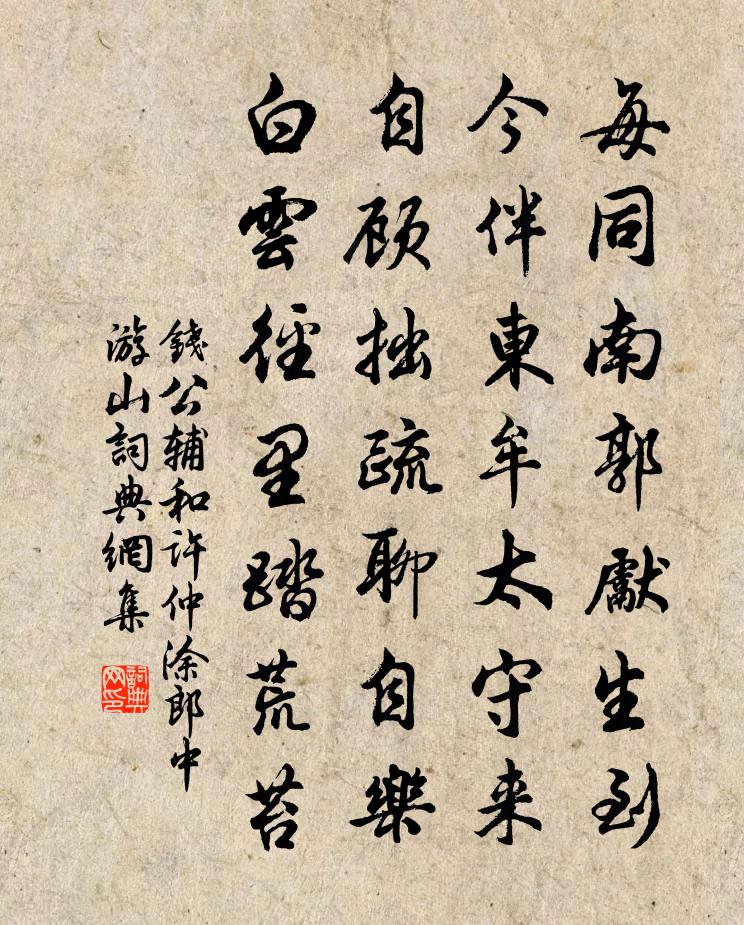 每同南郭獻生到
今伴東牟太守来
自顾拙疏聊自樂
白雲徑里踏荒苔
錢公辅和许仲涂郎中
游山詞典網集
詞典网印